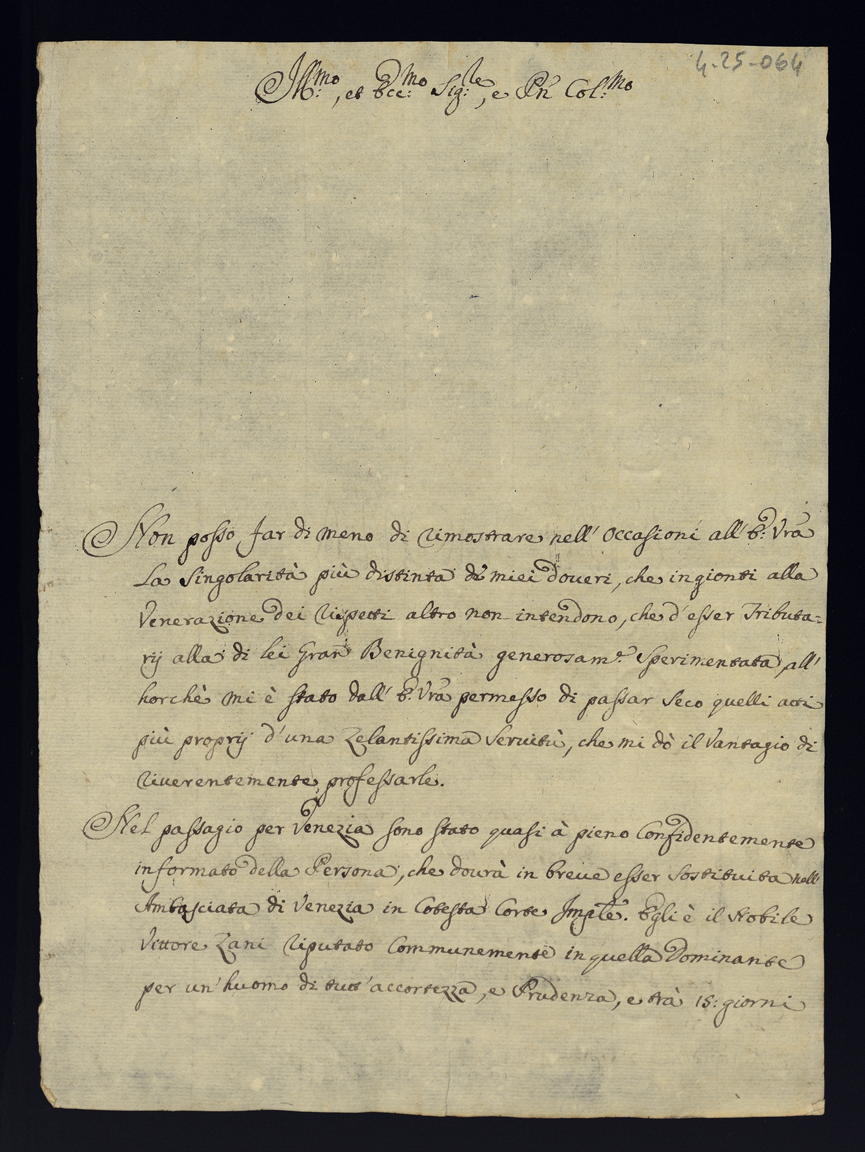 4-25-064
Ill:mo, et Ecc:mo Sig:re, e Pñ Col:mo
Non posso far di meno di rimostrare nell' occasioni all' E: Vra
La Singolarità più distinta dè miei doueri, che ingionti alla
Venerazione dei rispetti altro non intendono, che d'esser Tributa=
rij alla di lei Gran Benignità generosam.e Sperimentata, all'
horchè mi è stato dall' E: Vra permesso di passar seco quelli atti
più proprij d'una Zelantissima Seruitù, che mi dò il Vantagio di
riuerentemente professarle.
Nel passagio per Venezia sono stato quasi à pieno Confidentemente
informato della Persona, che dourà in breue esser sostituita nell'
Ambasciata di Venezia in Cotesta Corte Imple. Egli è il Nobile
Vittore Zani riputato Communemente in quella Dominante
per un' huomo di tutt' accortezza, e Prudenza, e trà 15: giorni